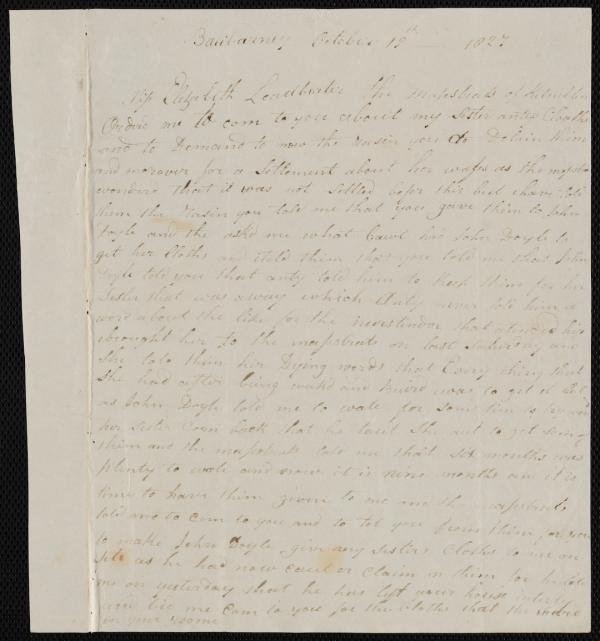 October 19th 1827
Miss Elizabeth Leadbeater the majestrats of
me to com to you about my Sister antys Cloaths
and to Demand to now the rasin you do Detain them
and moraver for a Settlement about her wages as the majestrats
wondird that it was not Setled before this but I have told
them the rasin you told me that you gave them to John
Doyle and the askd me what Cawl has John Doyle to
get her Cloths and I told them that you told me that John
Doyle told you that anty told him to Keep them for her
Sister that was away which Anty never told him a
word about the like for the that atended her
I brought her to the majestrats on last Saturday and
She told them her Dying words that Every thing that
She had after being wakd and Buired was to get it But
as John Doyle told me to wate for Som time to try
her Sister Com back that he She out to get Som of
them and the majestrats told me that Six months was
plenty to wate and now it is nine months and it is
time to have them given to me and the majestrats
told me to com to you and to tel you from them for you
to make John Doyle give my Sisters Cloths to me
as he had now Cawl or Claim on them for he told
me on yesterday that he has left your house
and me Com to you for the Cloths that the were
in your